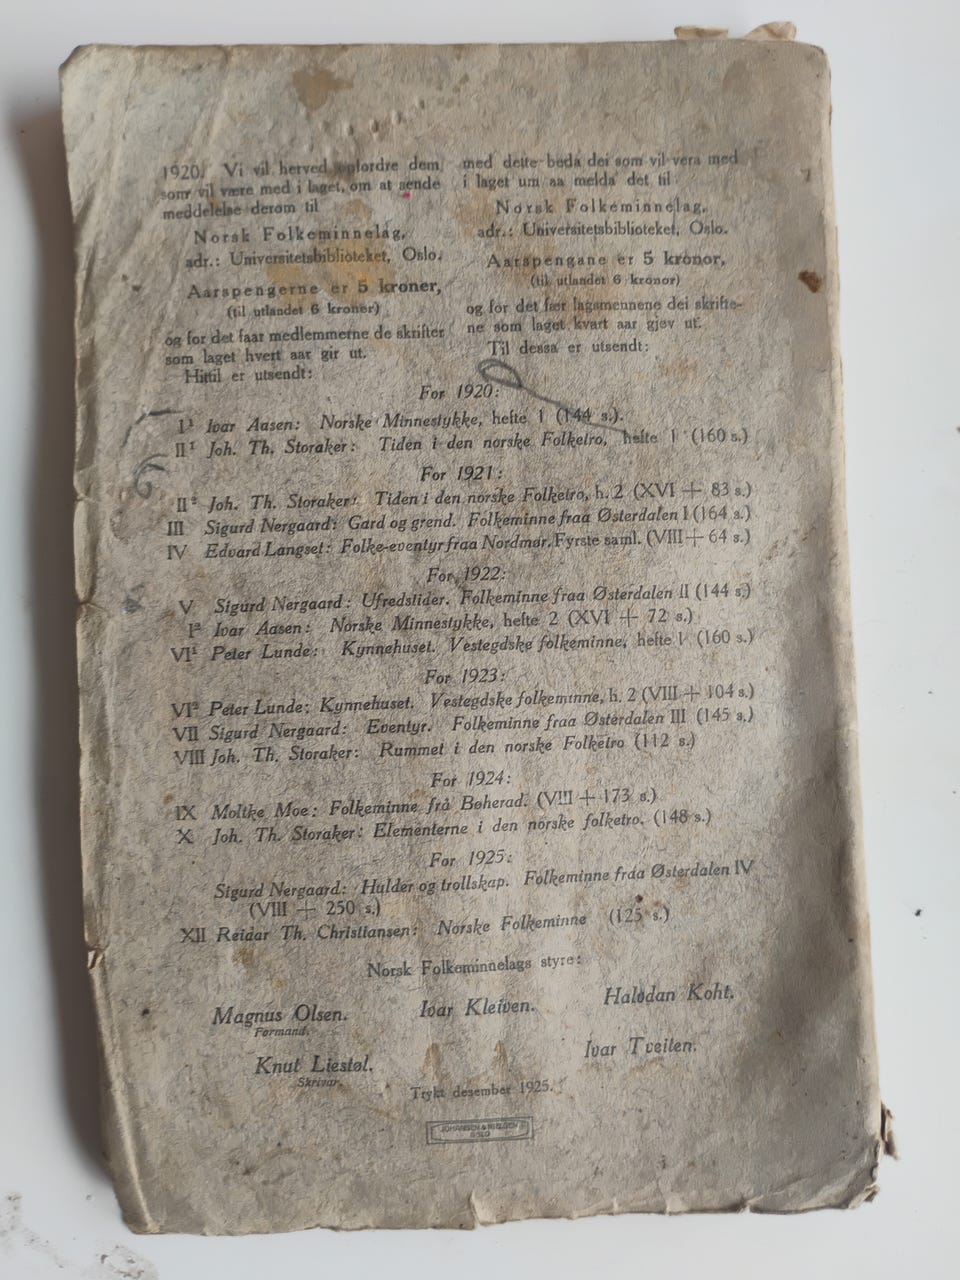 1920. Vi vil herved opfordre dem
som vil være med i laget, om at sende
meddelelse derom til
Norsk Folkeminnelag,
adr.: Universitetsbiblioteket, Oslo.
Aarspengerne er 5 kroner,
(til utlandet 6 kroner)
og for det faar medlemmerne de skrifter
som laget hvert aar gir ut.
Hittil er utsendt:
med dette beda dei som vil vera med
i laget um aa melda det til
Norsk Folkeminnelag,
adr.: Universitetsbiblioteket, Oslo.
Aarspengane er 5 kronor,
(til utlandet 6 kronor)
og for det fær lagsmennene dei skrifte-
ne som laget kvart aar gjev ut.
Til dessa er utsendt:
For 1920:
I¹ Ivar Aasen: Norske Minnestykke, hefte 1 (144 s.).
II¹ Joh. Th. Storaker: Tiden i den norske Folketro, hefte 1 (160 s.)
For 1921:
II² Joh. Th. Storaker: Tiden i den norske Folketro, h. 2 (XVI + 83 s.)
III Sigurd Nergaard: Gard og grend. Folkeminne fraa Østerdalen I (164 s.)
IV Edvard Langset: Folke-eventyr fraa Nordmør. Fyrste saml. (VIII + 64 s.)
For 1922:
V Sigurd Nergaard: Ufredstider. Folkeminne fraa Østerdalen II (144 s.)
I² Ivar Aasen: Norske Minnestykke, hefte 2 (XVI + 72 s.)
VI¹ Peter Lunde: Kynnehuset. Vestegdske folkeminne, hefte 1 (160 s.)
For 1923:
VI² Peter Lunde: Kynnehuset. Vestegdske folkeminne, h. 2 (VIII + 104 s.)
VII Sigurd Nergaard: Eventyr. Folkeminne fraa Østerdalen III (145 s.)
VIII Joh. Th. Storaker: Rummet i den norske Folketro (112 s.)
For 1924:
IX Moltke Moe: Folkeminne frå Bøherad. (VIII + 173 s.)
X Joh. Th. Storaker: Elementerne i den norske folketro. (148 s.)
For 1925:
Sigurd Nergaard: Hulder og trollskap. Folkeminne fraa Østerdalen IV
(VIII + 250 s.)
XII Reidar Th. Christiansen: Norske Folkeminne (125 s.)
Norsk Folkeminnelags styre:
Magnus Olsen. Ivar Kleiven. Halvdan Koht.
Formand.
Knut Liestøl. Ivar Tveiten.
Skrivar.
Trykt desember 1925.
JOHANSEN & NIELSEN
OSLO